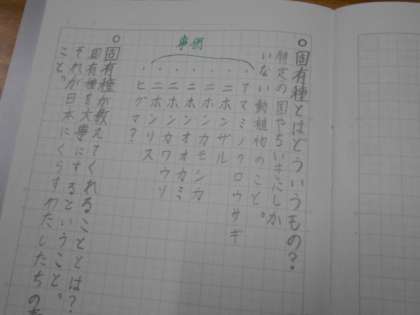 ○固有種とはどういうもの?
特定の国やちいきにしか
いない動植物のこと。
事例
・アマミノクロウサギ
・ニホンザル
・ニホンカモシカ
・ニホンオオカミ
・ニホンカワウソ
・ニホンリス
・ヒグマ?
○固有種が教えてくれることとは?
固有種を大事にするということ。
それが日本にくらすわたしたちの
こと。